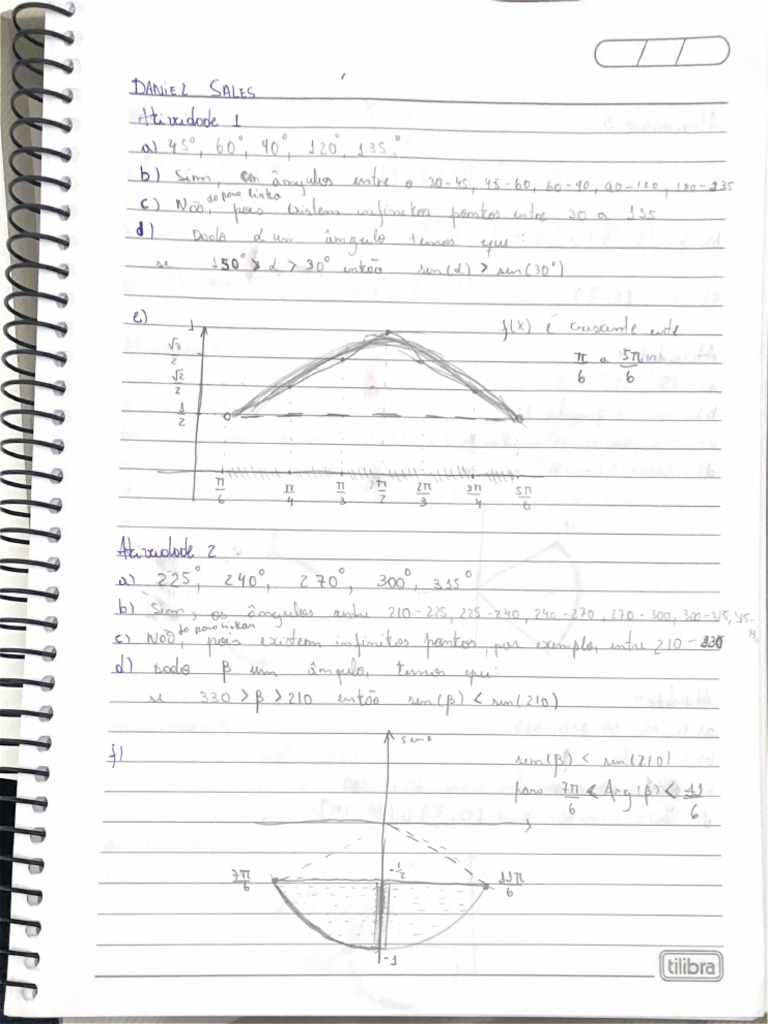 DANIEL SALES
Atividade 1
a) 45°, 60°, 90°, 120°, 135°.
b) Sim, os ângulos entre o 30-45, 45-60, 60-90, 90-120, 120-135
do para listar
c) Não, pois existem infinitos pontos entre 30 a 135
d) Dado α um ângulo temos que:
se 150° > α > 30° então sen(α) > sen(30°)
e) 1 f(x) é crescente ente
√3/2
π/6 a 5π/6
√2/2
1/2
π/6 π/4 π/3 π/2 2π/3 3π/4 5π/6
Atividade 2
a) 225°, 240°, 270°, 300°, 315°
b) Sim, os ângulos entre 210-225, 225-240, 240-270, 270-300, 300-315, 315-
do para listar
c) Não, pois existem infinitos pontos, por exemplo, entre 210-330
d) Dado β um ângulo, temos que:
se 330 > β > 210 então sen(β) < sen(210)
f) sen(β) < sen(210)
para 7π/6 < Arg(β) < 11/6
7π/6 -1/2 11π/6
-1
tilibra